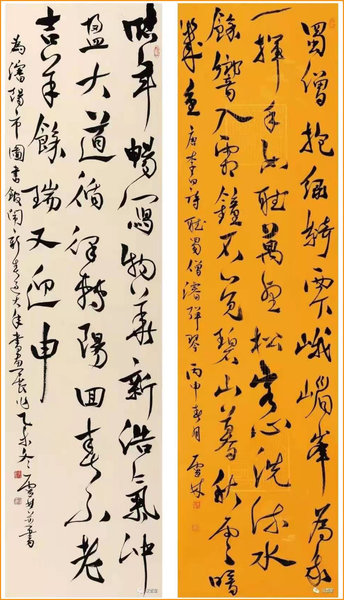 蜀僧抱綠綺西下峨嵋峯為我
一揮手如聽萬壑松客心洗流水
餘響入霜鐘不覺碧山暮秋雲暗
幾重
唐李白詩聽蜀僧濬彈琴 丙申春月
年暢寫物華新浩氣沖
盈大道循律轉陽回春不老
吉羊餘瑞又迎申
為瀋陽市圖書館新春大年書畫展作乙未冬